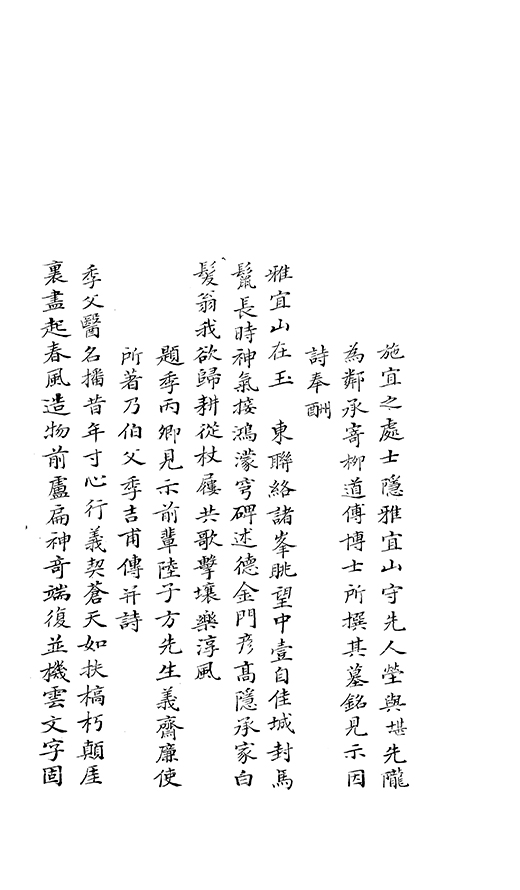 施宜之處士隱雅宜山守先人塋與堪先隴
為鄰承寄柳道傳博士所撰其墓銘見示因
詩奉酬
雅宜山在玉　東聯絡諸峯眺望中壹自佳城封馬
鬛長時神氣接鴻濛穹碑述德金門彦高隱承家白
髪翁我欲歸耕從杖屨共歌擊壤樂淳風
題季丙卿見示前輩陸子方先生義齋廉使
所著乃伯父季吉甫傳并詩
季父醫名播昔年寸心行義契蒼天如扶槁朽顛厓
裏盡起春風造物前盧扁神奇端復並機雲文字固